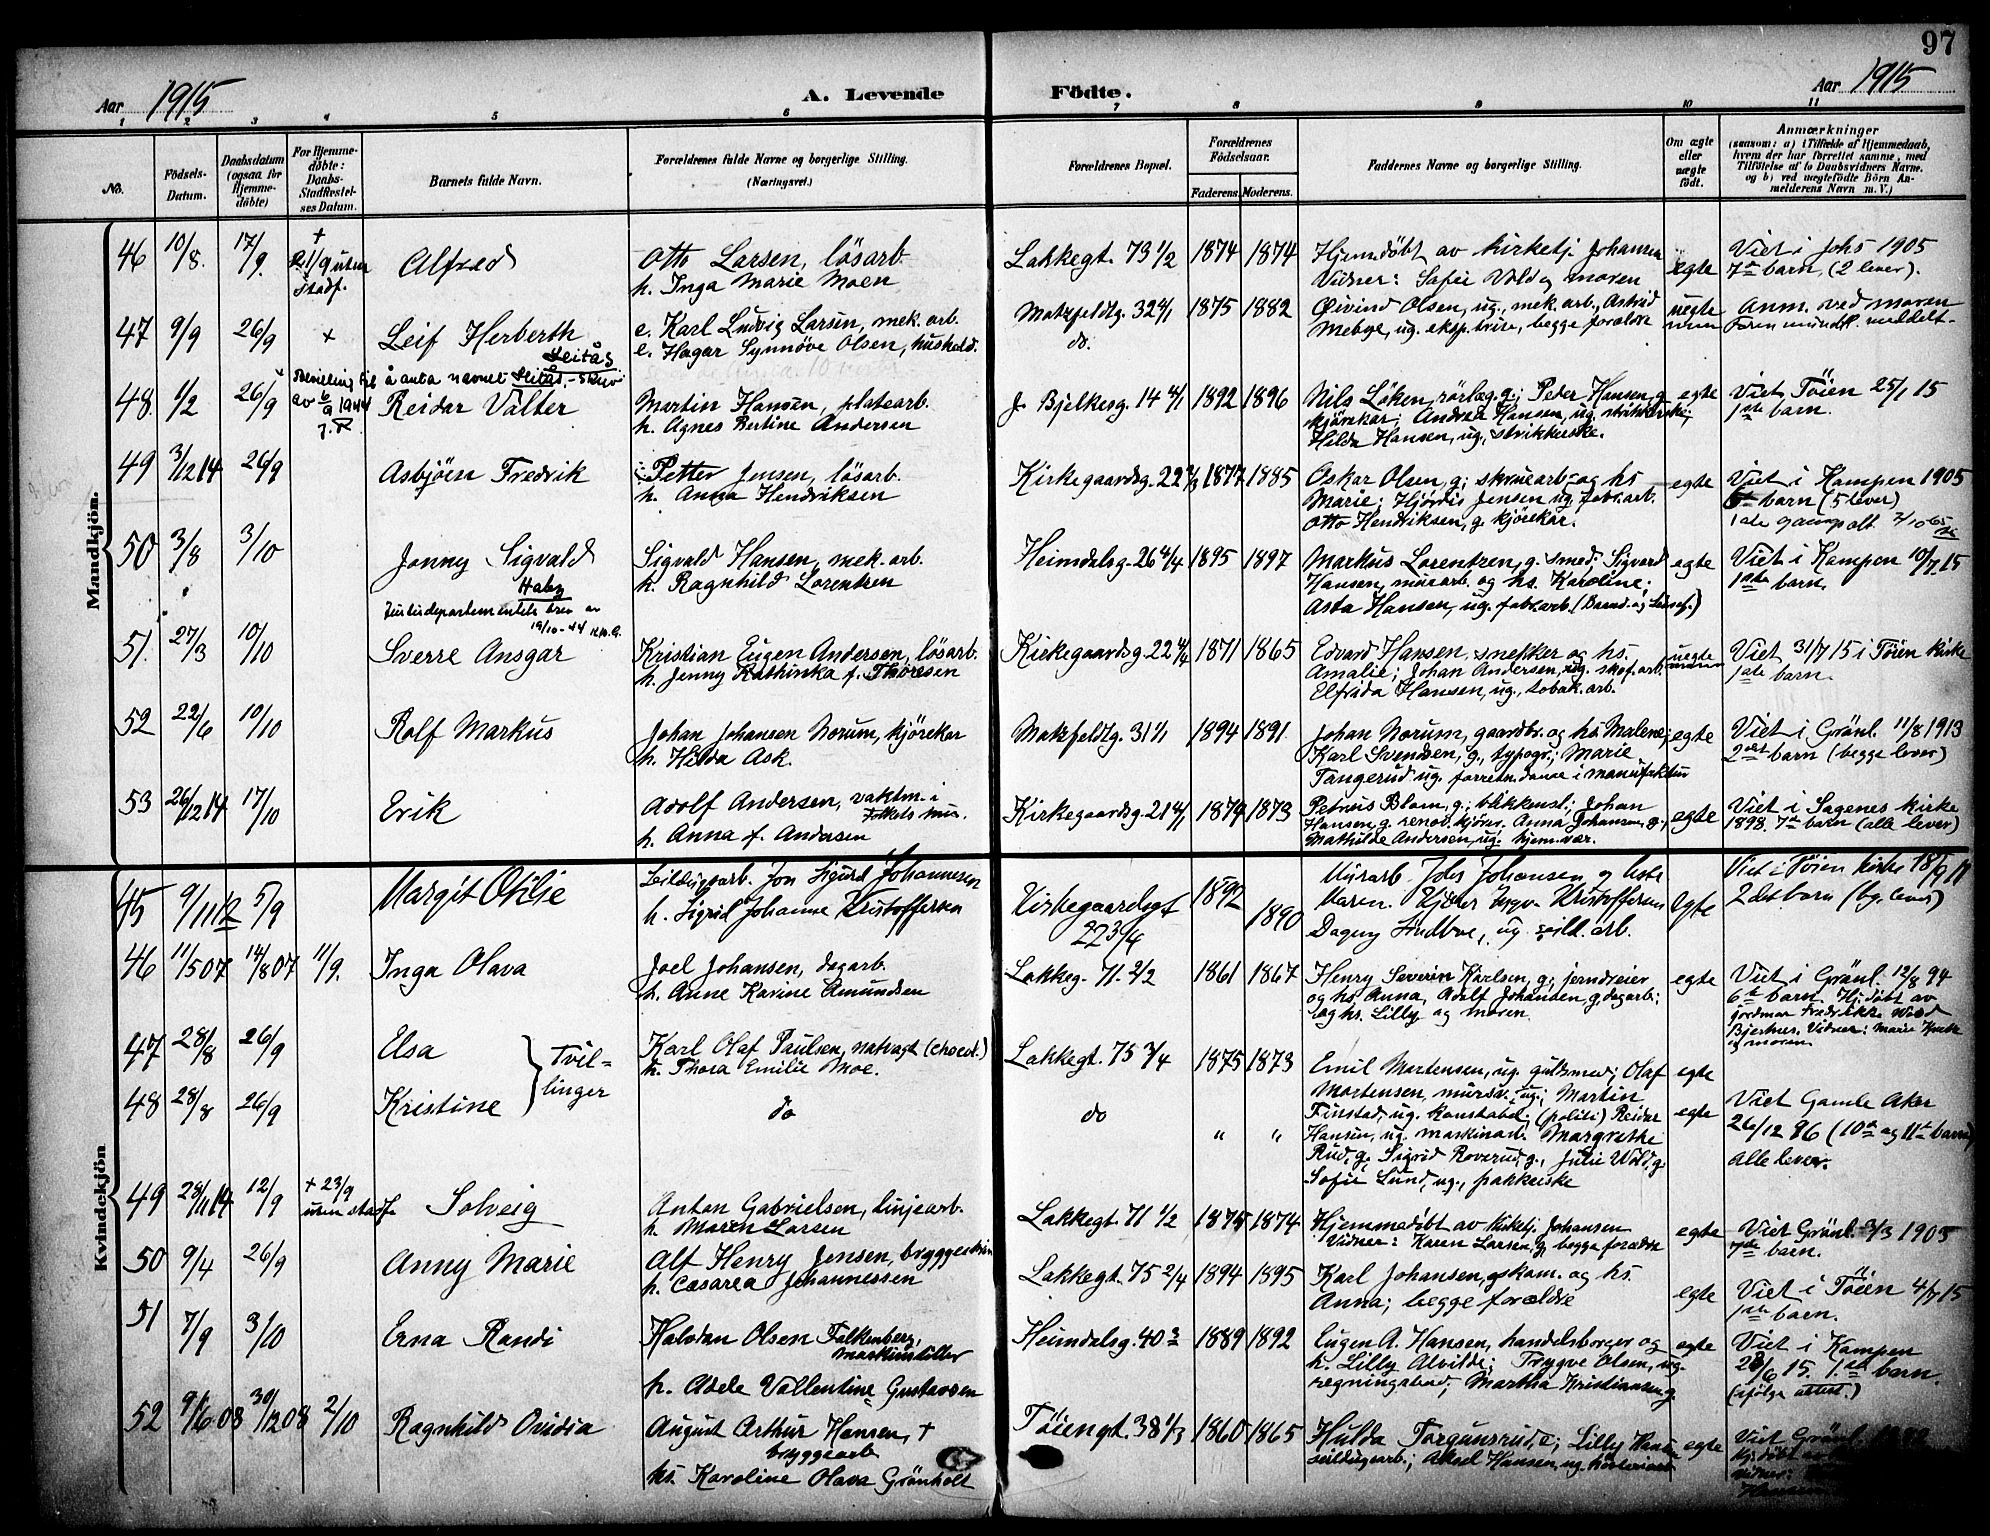 97
Aar 1915
A. Levende Födte.
Aar 1915
1 2 3 4 5 6 7 8 9 10 11
No.
Födsels-Datum.
Daabsdatum (ogsaa for Hjemme-döbte)
For Hjemme-döbte: Daabs-Stadfestel-ses Datum.
Barnets fulde Navn.
Forældrenes fulde Navne og borgerlige Stilling.
(Næringsvei.)
Forældrenes Bopæl.
Forældrenes Födselsaar.
Faderens. Moderens.
Faddernes Navne og borgerlige Stilling.
Om ægte eller uægte födt.
Anmærkninger
(saasom: a) i Tilfælde af Hjemmedaab,
hvem der har forrettet samme, med
Tilföielse af to Daabsvidners Navne.
og b) ved uægtefödte Börn An-
melderens Navn m. V.)
Mandkjön.
46 10/8. 17/9. + utm stadf. Alfred
Otto Larsen, løsarb.
h. Inga Marie Moen
Lakkegt. 73 1/2 1874 1874
Hjemdøbt av kirketj. Johansen
Vidner: Sofie Vold og moren
egte
Viet i Johs 1905
7de barn (2 lever).
47 9/9 26/9 + Leif Herberth
e. Karl Ludvig Larsen, mek. arb.
e. Hagar Synnøve Olsen, hushold.
Motzfeldtg. 32 4/1 do. 1875 1882
Øivind Olsen, ug. mek. arb., Astrid
Mebye, ug. eksp.trise, begge forældre
uegte
Anm. ved moren
Faren mundtl. meddelt.
48 1/2 26/9 Bevilling til å anta navnet Heitås
av 6/9 1944 J. D.
Heitås
Reidar Valter
Martin Hansen, platearb.
h. Agnes Bertine Andersen
J. Bjelkesg. 14 4/1 1892 1896
Nils Löken, rörlæg. g; Peder Hansen, g
kjörekar; Andrea Hansen, ug. strikkerske;
Hilda Hansen, ug., strikkerske.
egte
Viet Töien 25/1 15
1ste barn.
49 3/12 14 26/9 Asbjörn Fredrik
Petter Jensen, løsarb.
h. Anna Hendriksen
Kirkegaardsg. 22 1877 1885
Oskar Olsen, g; skruearb. og hs
Marie; Hjördis Jensen ug. fabr.arb.
Otto Hendriksen, g. kjörekar.
egte
Viet i Kampen 1905
barn (5 lever)
50 3/8 3/10 Jonny Sigvald
Haby
Justisdepartementets brev av
19/10-44
Sigvald Hansen, mek. arb.
h. Ragnhild Lorentzen
Heimdalsg. 26 4/4 1895 1897
Markus Lorentzen, g. smed; Sigvard
Hansen, murarb. og hs. Karoline;
Asta Hansen, ug. fabr.arb.
egte
Viet i Kampen 10/7.15
1ste barn.
51. 27/3 10/10 Sverre Ansgar
Kristian Eugen Andersen, løsarb.
h. Jenny Kathinka f. Thoresen
Kirkegaardsg. 22 4/4 1871 1865
Edvard Hansen, snekker og hs.
Amalie; Johan Andersen, ug. skof. arb.
Elfrida Hansen, ug., tobak. arb.
uegte
Viet 31/7 15 i Töien kirke
1ste barn.
52 22/6 10/10 Rolf Markus
Johan Johansen Norum, kjörekar
h. Hilda Ask.
Motzfeldtg. 31 4/1 1894 1891
Johan Norum, gaardbr. og hs Malene;
Karl Svendsen, g., typogr.; Marie
Tangerud ug. forretn.dame i manufaktur
egte
Viet i Grönl. 11/8 1913
2det barn (begge lever)
53 26/12 14 17/10 Erik
Adolf Andersen, vaktm. i
Folkets hus.
h. Anna f. Andersen
Kirkegaardsg. 21 4/1 1874 1873
Petrus Blom, g.; blikkensl.; Johan
Hansen, g. renov. kjörer. Anna Johansen, g.;
Mathilde Andersen, ug. hjem.vær.
egte
Viet i Sagenes kirke
1898. 7de barn (alle lever)
Kvindekjön
45 9/11 12 5/9 Margit Otilie
Seildugsarb. Jon Sigurd Johannesen
h. Sigrid Johanne Kristoffersen
Kirkegaardsgt 22 3/4 1892 1890
Murarb. Johansen og hustr
Maren. Kristoffersen
Dagny Lindboe, ug. seild. arb.
egte
Viet i Töien kirke 18/9 11
2det barn (bg. lever)
46 11/5 07 14/8 07 11/9. Inga Olava
Joel Johansen, dagarb.
h. Anne Karine Amundsen
Lakkeg. 71. 2/2 1861 1867
Henry Severin Karlsen, g; jerndreier
og hs. Anna, Adolf Johansen, g, dagarb;
og hs. Lilly og moren.
egte
Viet i Grönl. 12/8 94
6te barn Hj. döbt av
jordmor Fredrikke
Bjerknes. Vidner: Marie
og moren.
47 28/8 26/9 Elsa
Tvil-linger
Karl Olaf Paulsen, natvagt (chocol.)
h. Thora Emilie Moe.
Lakkegt. 75 3/4 1875 1873
Emil Martensen, ug. guldsmed; Olaf
Mortensen, murer ug; Martin
Finstad, ug. konstabel; (politi) Reidar
Hansen, ug. maskinarb. Margrethe
Rud, g, Sigrid Roverud, g., Julie Wold, g
Sofie Lund, ug., pakkerske
egte
48 28/8 26/9 Kristine
do do " "
egte
Viet Gamle Aker
26/12 96 (10de og 11te barn)
Alle lever.
49 28/11 14 12/9 + 23/9 uten stadf Solveig
Anton Gabrielsen, linjearb.
h. Maren Larsen
Lakkegt. 71 1/2 1875 1874
Hjemmedøbt av kirketj. Johansen
Vidner: Karen Larsen, g, begge forældre
egte
Viet Grönl. 3/3 1905
7de barn.
50 9/4 26/9 Anny Marie
Alf Henry Jensen, bryggeri
h. Cæsarea Johannessen
Lakkegt. 75 2/4 1894 1895
Karl Johansen, g skom. og hs.
Anna; begge forældre
egte
Viet i Töien 4/7 15
1ste barn.
51 7/9 3/10 Erna Randi
Halvdan Olsen Falkenberg,
maskinstiller
h. Adele Vallentine Gustavsen
Heimdalsg. 40 3 1889 1892
Eugen A. Hansen, handelsborger og
h. Lilly Alvilde; Trygve Olsen, ug.
regningsbud; Martha Kristiansen g
egte
Viet i Kampen
28/6 15. 1ste barn.
(ifölge attest.)
52 9/6 08 30/12 08 2/10 Ragnhild Ovidia
August Arthur Hansen, +
bryggearb
hs. Karoline Olava Grönholt
Töiengt. 38 1/3 1860 1865
Hulda Torgunsrud, e; Lilly Hansen
seildugsarb.; Aksel Hansen, ug.
egte
Viet Grönl.
Hj. döbt av
Vidner: